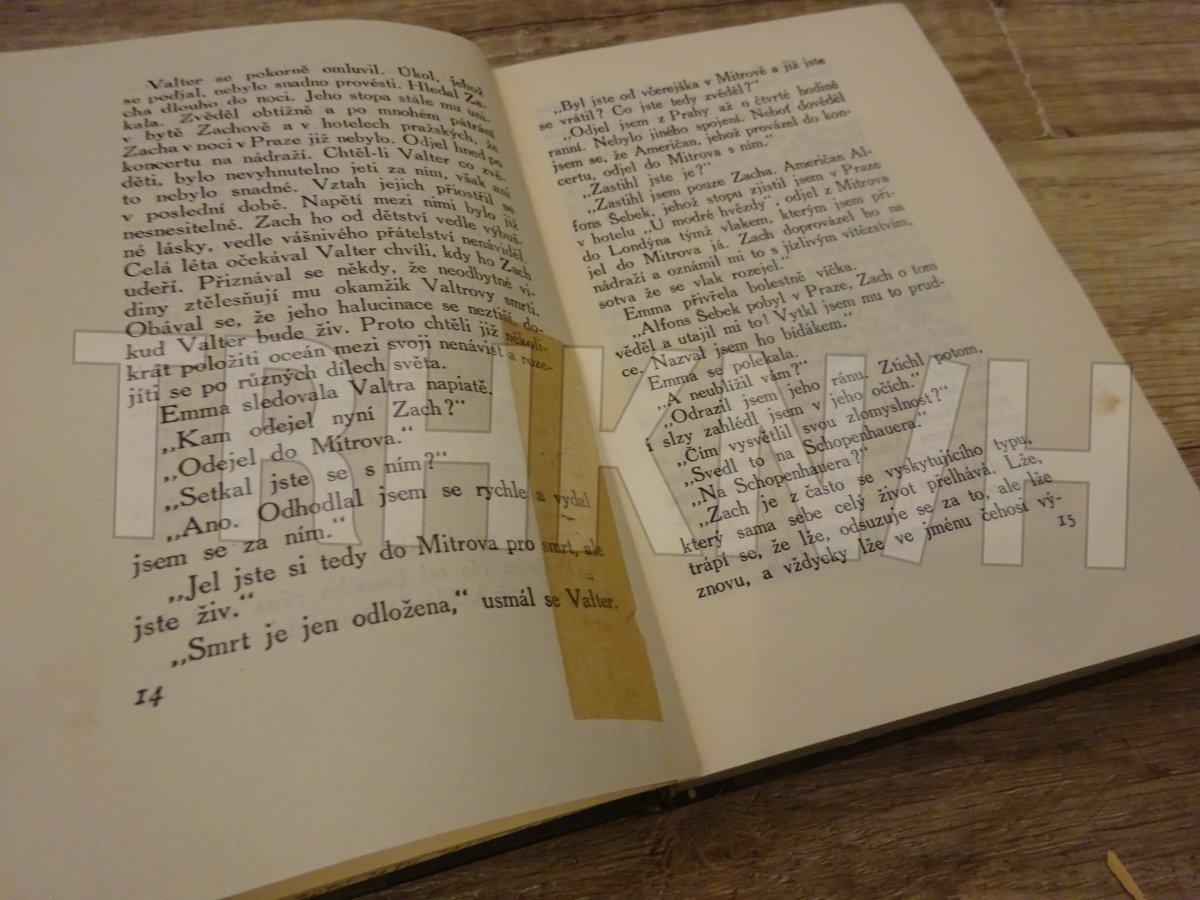 Valter se pokorně omluvil. Úkol, jehož
se podjal, nebylo snadno provésti. Hledal Za-
cha dlouho do noci. Jeho stopa stále mu uni-
kala. Zvěděl obtížně a po mnohém pátrání
v bytě Zachově a v hotelech pražských, že
Zacha v noci v Praze již nebylo. Odjel hned po
koncertu na nádraží. Chtěl-li Valter co zvě-
děti, bylo nevyhnutelno jeti za ním, však ani
to nebylo snadné. Vztah jejich přiostřil se
v poslední době. Napětí mezi nimi bylo již
nesnesitelné. Zach ho od dětství vedle výbuš-
né lásky, vedle vášnivého přátelství nenáviděl.
Celá léta očekával Valter chvíli, kdy ho Zach
udeří. Přiznával se někdy, že neodbytné vi-
diny ztělesňují mu okamžik Valtrovy smrti.
Obával se, že jeho halucinace se neztiší, do-
kud Valter bude živ. Proto chtěli již několi-
krát položiti oceán mezi svoji nenávist a roze-
jíti se po různých dílech světa.
Emma sledovala Valtra napiatě.
„Kam odejel nyní Zach?“
„Odejel do Mitrova.“
„Setkal jste se s ním?“
„Ano. Odhodlal jsem se rychle a vydal
jsem se za ním.“
„Jel jste si tedy do Mitrova pro smrt, ale
jste živ.“
„Smrt je jen odložena,“ usmál se Valter.
14
„Byl jste od včerejška v Mitrově a již jste
se vrátil? Co jste tedy zvěděl?“
„Odjel jsem z Prahy až o čtvrté hodině
ranní. Nebylo jiného spojení. Neboť dověděl
jsem se, že Američan, jehož provázel do kon-
certu, odjel do Mitrova s ním.“
„Zastihl jste je?“
„Zastihl jsem pouze Zacha. Američan Al-
fons Šebek, jehož stopu zjistil jsem v Praze
v hotelu „U modré hvězdy“, odjel z Mitrova
do Londýna týmž vlakem, kterým jsem při-
jel do Mitrova já. Zach doprovázel ho na
nádraží a oznámil mi to s jízlivým vítězstvím,
sotva že se vlak rozejel.“
Emma přivřela bolestně víčka.
„Alfons Šebek pobyl v Praze, Zach o tom
věděl a utajil mi to! Vytkl jsem mu to prud-
ce. Nazval jsem ho bídákem.“
Emma se polekala.
„A neublížil vám?“
„Odrazil jsem jeho ránu. Ztichl potom,
i slzy zahlédl jsem v jeho očích.“
„Čím vysvětlil svou zlomyslnost?“
„Svedl to na Schopenhauera.“
„Na Schopenhauera?“
„Zach je z často se vyskytujícího typu,
který sama sebe celý život přelhává. Lže,
trápí se, že lže, odsuzuje se za to, ale lže
znovu, a vždycky lže ve jménu čehosi vý-
15